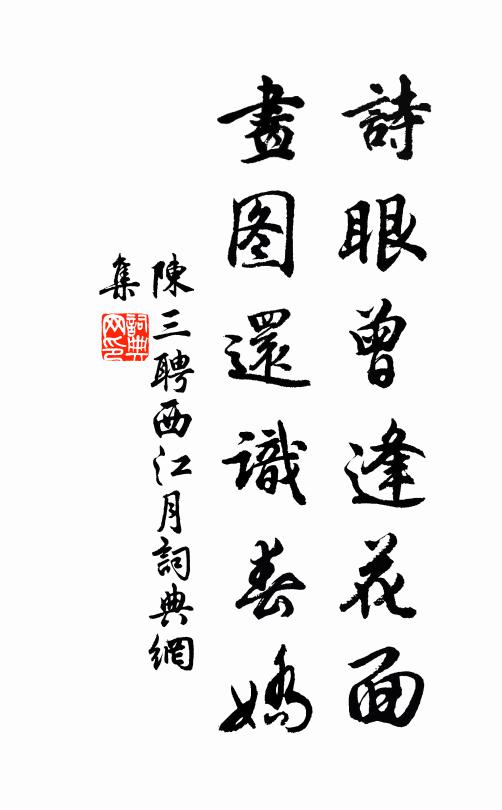 詩眼曾逢花面
畫图還識春嬌
陳三聘西江月詞典網
集
詞典網印